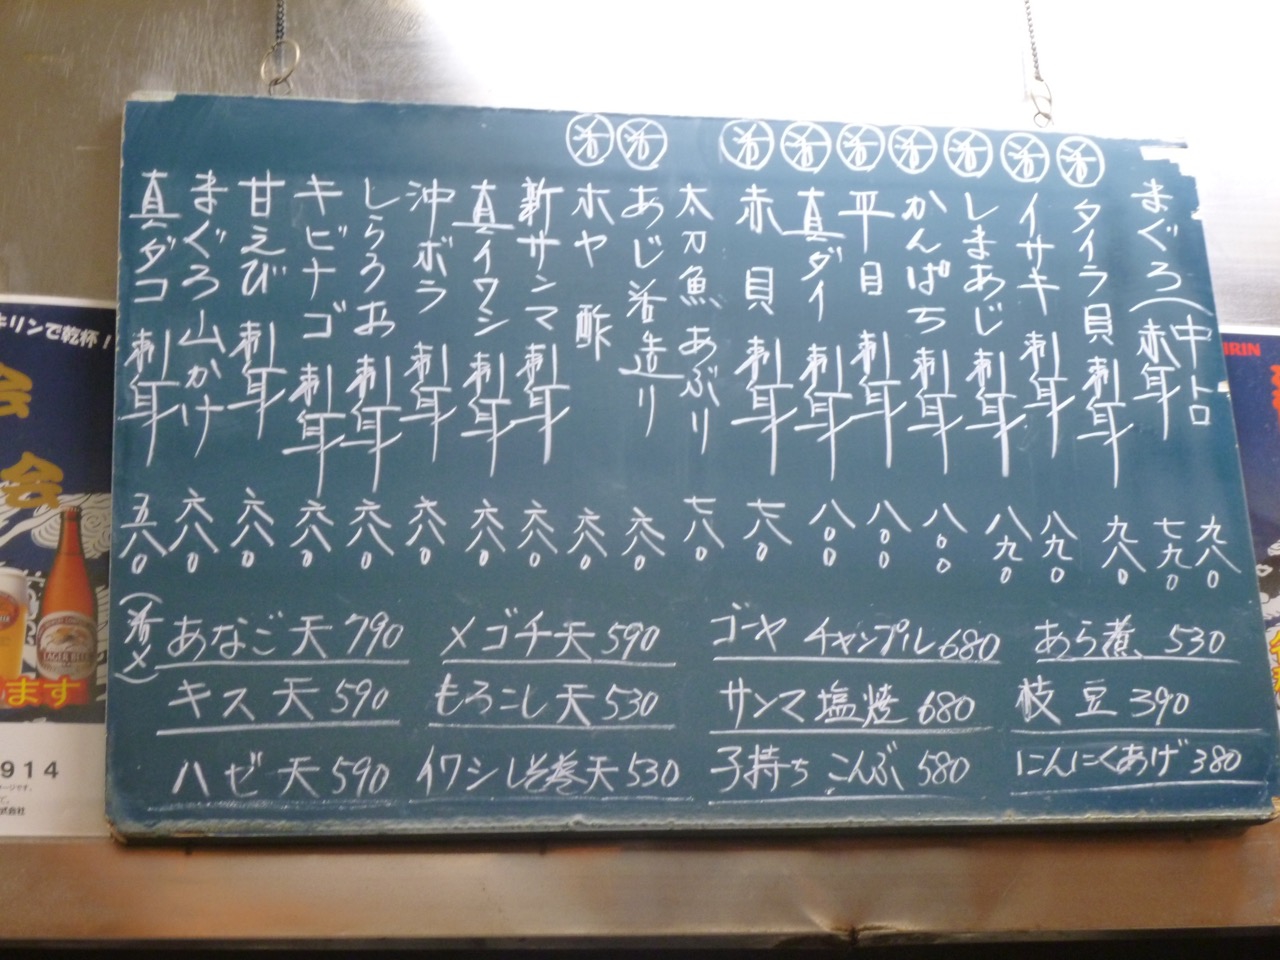 まぐろ(中トロ 九八〇
赤身 七九〇
活 タイラ貝 刺身 九八〇
活 イサキ 刺身 八九〇
活 しまあじ 刺身 八九〇
活 かんぱち 刺身 八〇〇
活 平目 刺身 八〇〇
活 真ダイ 刺身 八〇〇
活 赤貝 刺身 七八〇
太刀魚あぶり 七八〇
活 あじ活造り 六八〇
活 ホヤ酢 六八〇
新サンマ 刺身 六八〇
真イワシ 刺身 六八〇
沖ボラ 刺身 六八〇
しらうお 刺身 六八〇
キビナゴ 刺身 六八〇
甘えび 刺身 六八〇
まぐろ山かけ 六八〇
真ダコ 刺身 五八〇
(活〆)あなご天 790
メゴチ天 590
ゴーヤチャンプル 680
あら煮 530
キス天 590
もろこし天 530
サンマ塩焼 680
枝豆 390
ハゼ天 590
イワシしそ巻天 530
子持ちこんぶ 580
にんにくあげ 380
キリンで乾杯!
会
会
LAGER BEER
ます
914
式会社
KIRIN